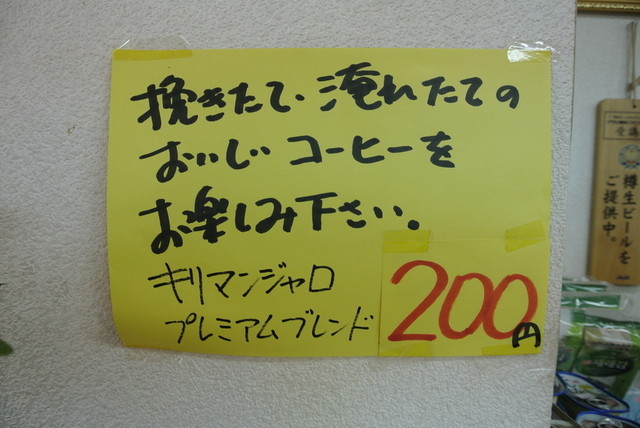 挽きたて、淹れたての
おいしい コーヒーを
お楽しみ下さい。
キリマンジャロ
プレミアムブレンド
200円
樽生ビールを
ご提供中。